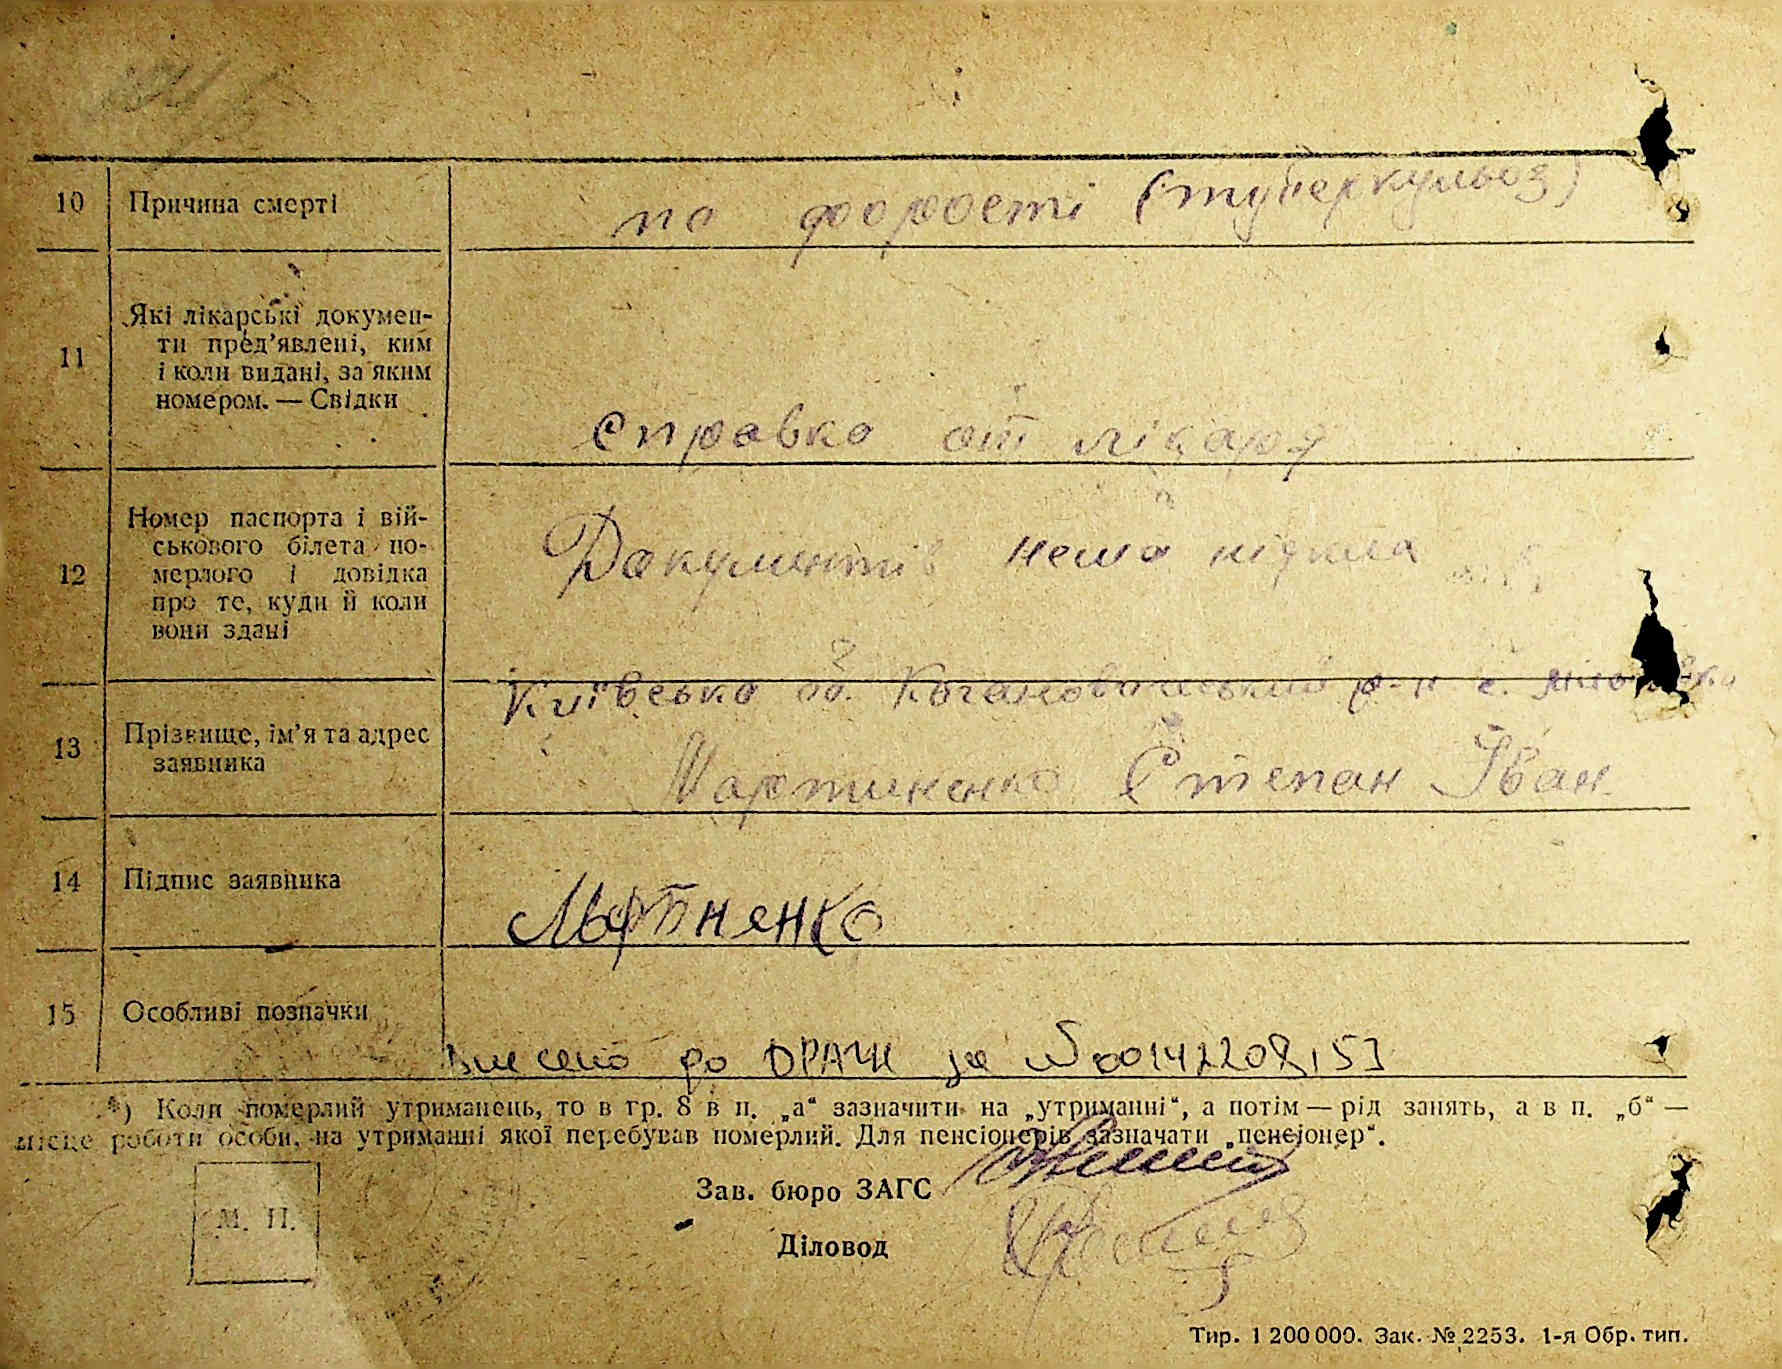 10 Причина смерті по форості (туберкульоз)
11 Які лікарські докумен-
ти пред’явлені, ким
і коли видані, за яким
номером. — Свідки
Справка от лікаря
12 Номер паспорта і вій-
ськового білета по-
мерлого і довідка
про те, куди й коли
вони здані
Документів
Київська об. Кагановичський р-н с.
13 Прізвище, ім’я та адрес
заявника
Мартиненко Степан Іван
14 Підпис заявника
Мартиненко
15 Особливі позначки
Внесено до ДРАЦС за №00142208153
*) Коли померлий утриманець, то в гр. 8 в п. „а“ зазначити на „утриманні“, а потім — рід занять, а в п. „б“ —
місце роботи особи, на утриманні якої перебував померлий. Для пенсіонерів зазначати „пенсіонер“.
Зав. бюро ЗАГС
М. П.
Діловод
Тир. 1 200 000. Зак. № 2253. 1-я Обр. тип.